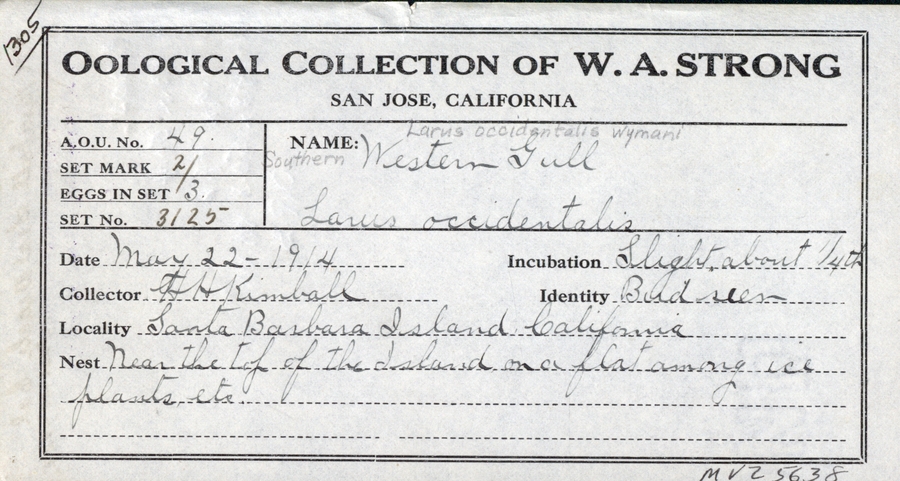 1305
OOLOGICAL COLLECTION OF W. A. STRONG
SAN JOSE, CALIFORNIA
A.O.U. No. 49.
SET MARK 2/
EGGS IN SET 3.
SET No. 3125
Larus occidentalis wymani
NAME: Western Gull
Southern
Larus occidentalis
Date May 22 - 1914
Incubation Slight, about 1/4th
Collector H H Kimball
Identity Bird seen
Locality Santa Barbara Island California
Nest Near the top of the Island on a flat among ice
plants, etc.
MVZ 5638